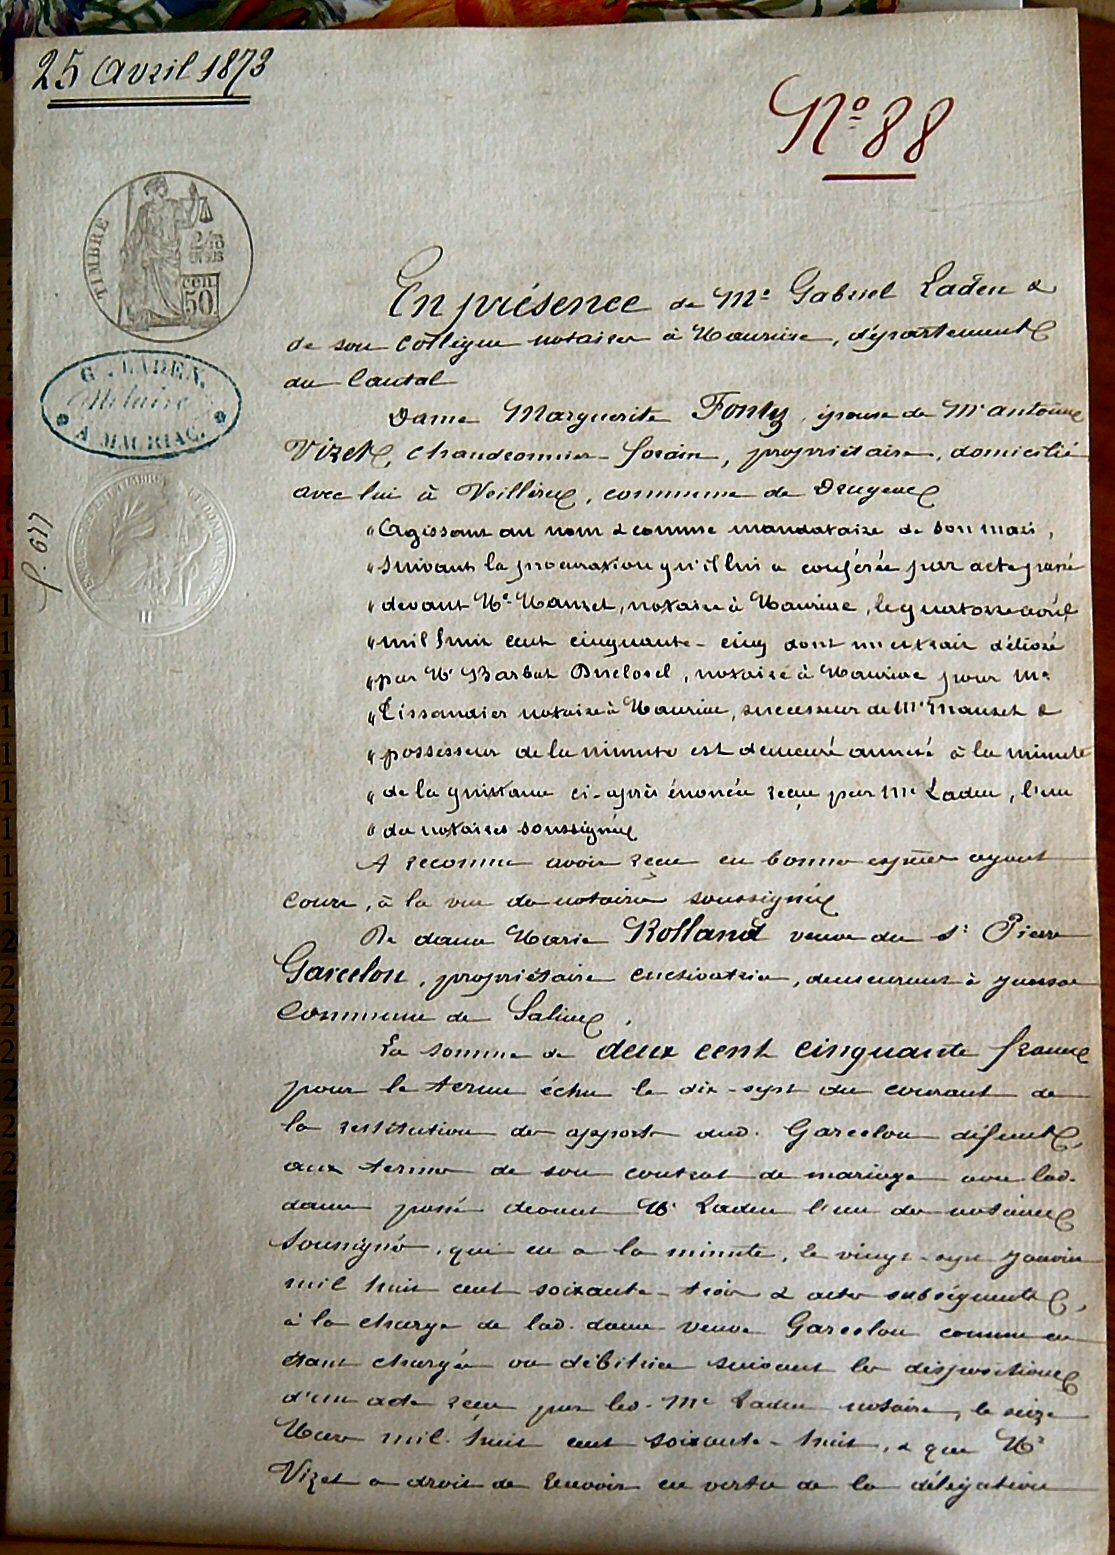 25 Avril 1873
N° 88
TIMBRE
2/10 EN SUS
50 cen
G. LADEN,
Notaire
A MAURIAC.
f. 677
En présence de Me Gabriel Laden &
de son collègue notaires à Mauriac, département
du Cantal
Dame Marguerite Fonty, épouse de Mr antoine
Vizet, chaudronnier-forain, propriétaire, domicilié
avec lui à Veillieux, commune de Drugeac
"Agissant au nom & comme mandataire de son mari,
"Suivant la procuration qu'il lui a conférée par acte passé
"devant Me Mauzet, notaire à Mauriac, le quatorze avril
"mil huit cent cinquante-cinq dont un extrait délivré
"par Me Barbat Duclosel, notaire à Mauriac pour Me
"Tissandier notaire à Mauriac, successeur de Me Mauzet &
"possesseur de la minute est demeuré annexé à la minute
"de la quittance ci-après énoncée reçue par Me Laden, l'un
"des notaires soussignés
A reconnu avoir reçu en bonnes espèces ayant
cours, à la vue des notaires soussignés
De dame Marie Rolland veuve du Sr Pierre
Garcelon, propriétaire cultivatrice, demeurant à
Commune de Salins,
La somme de deux cent cinquante francs
pour le terme échu le dix-sept du courant de
la restitution des apports dud. Garcelon défunt,
aux termes de son contrat de mariage avec lad.
dame passé devant Me Laden l'un des notaires
soussignés, qui en a la minute, le vingt-sept janvier
mil huit cent soixante-trois & actes subséquents,
à la charge de lad. dame veuve Garcelon comme en
étant chargée ou débitrice suivant les dispositions
d'un acte reçu par led. Me Laden notaire, le seize
Mars mil huit cent soixante-huit, & que Mr
Vizet a droit de recevoir en vertu de la délégation